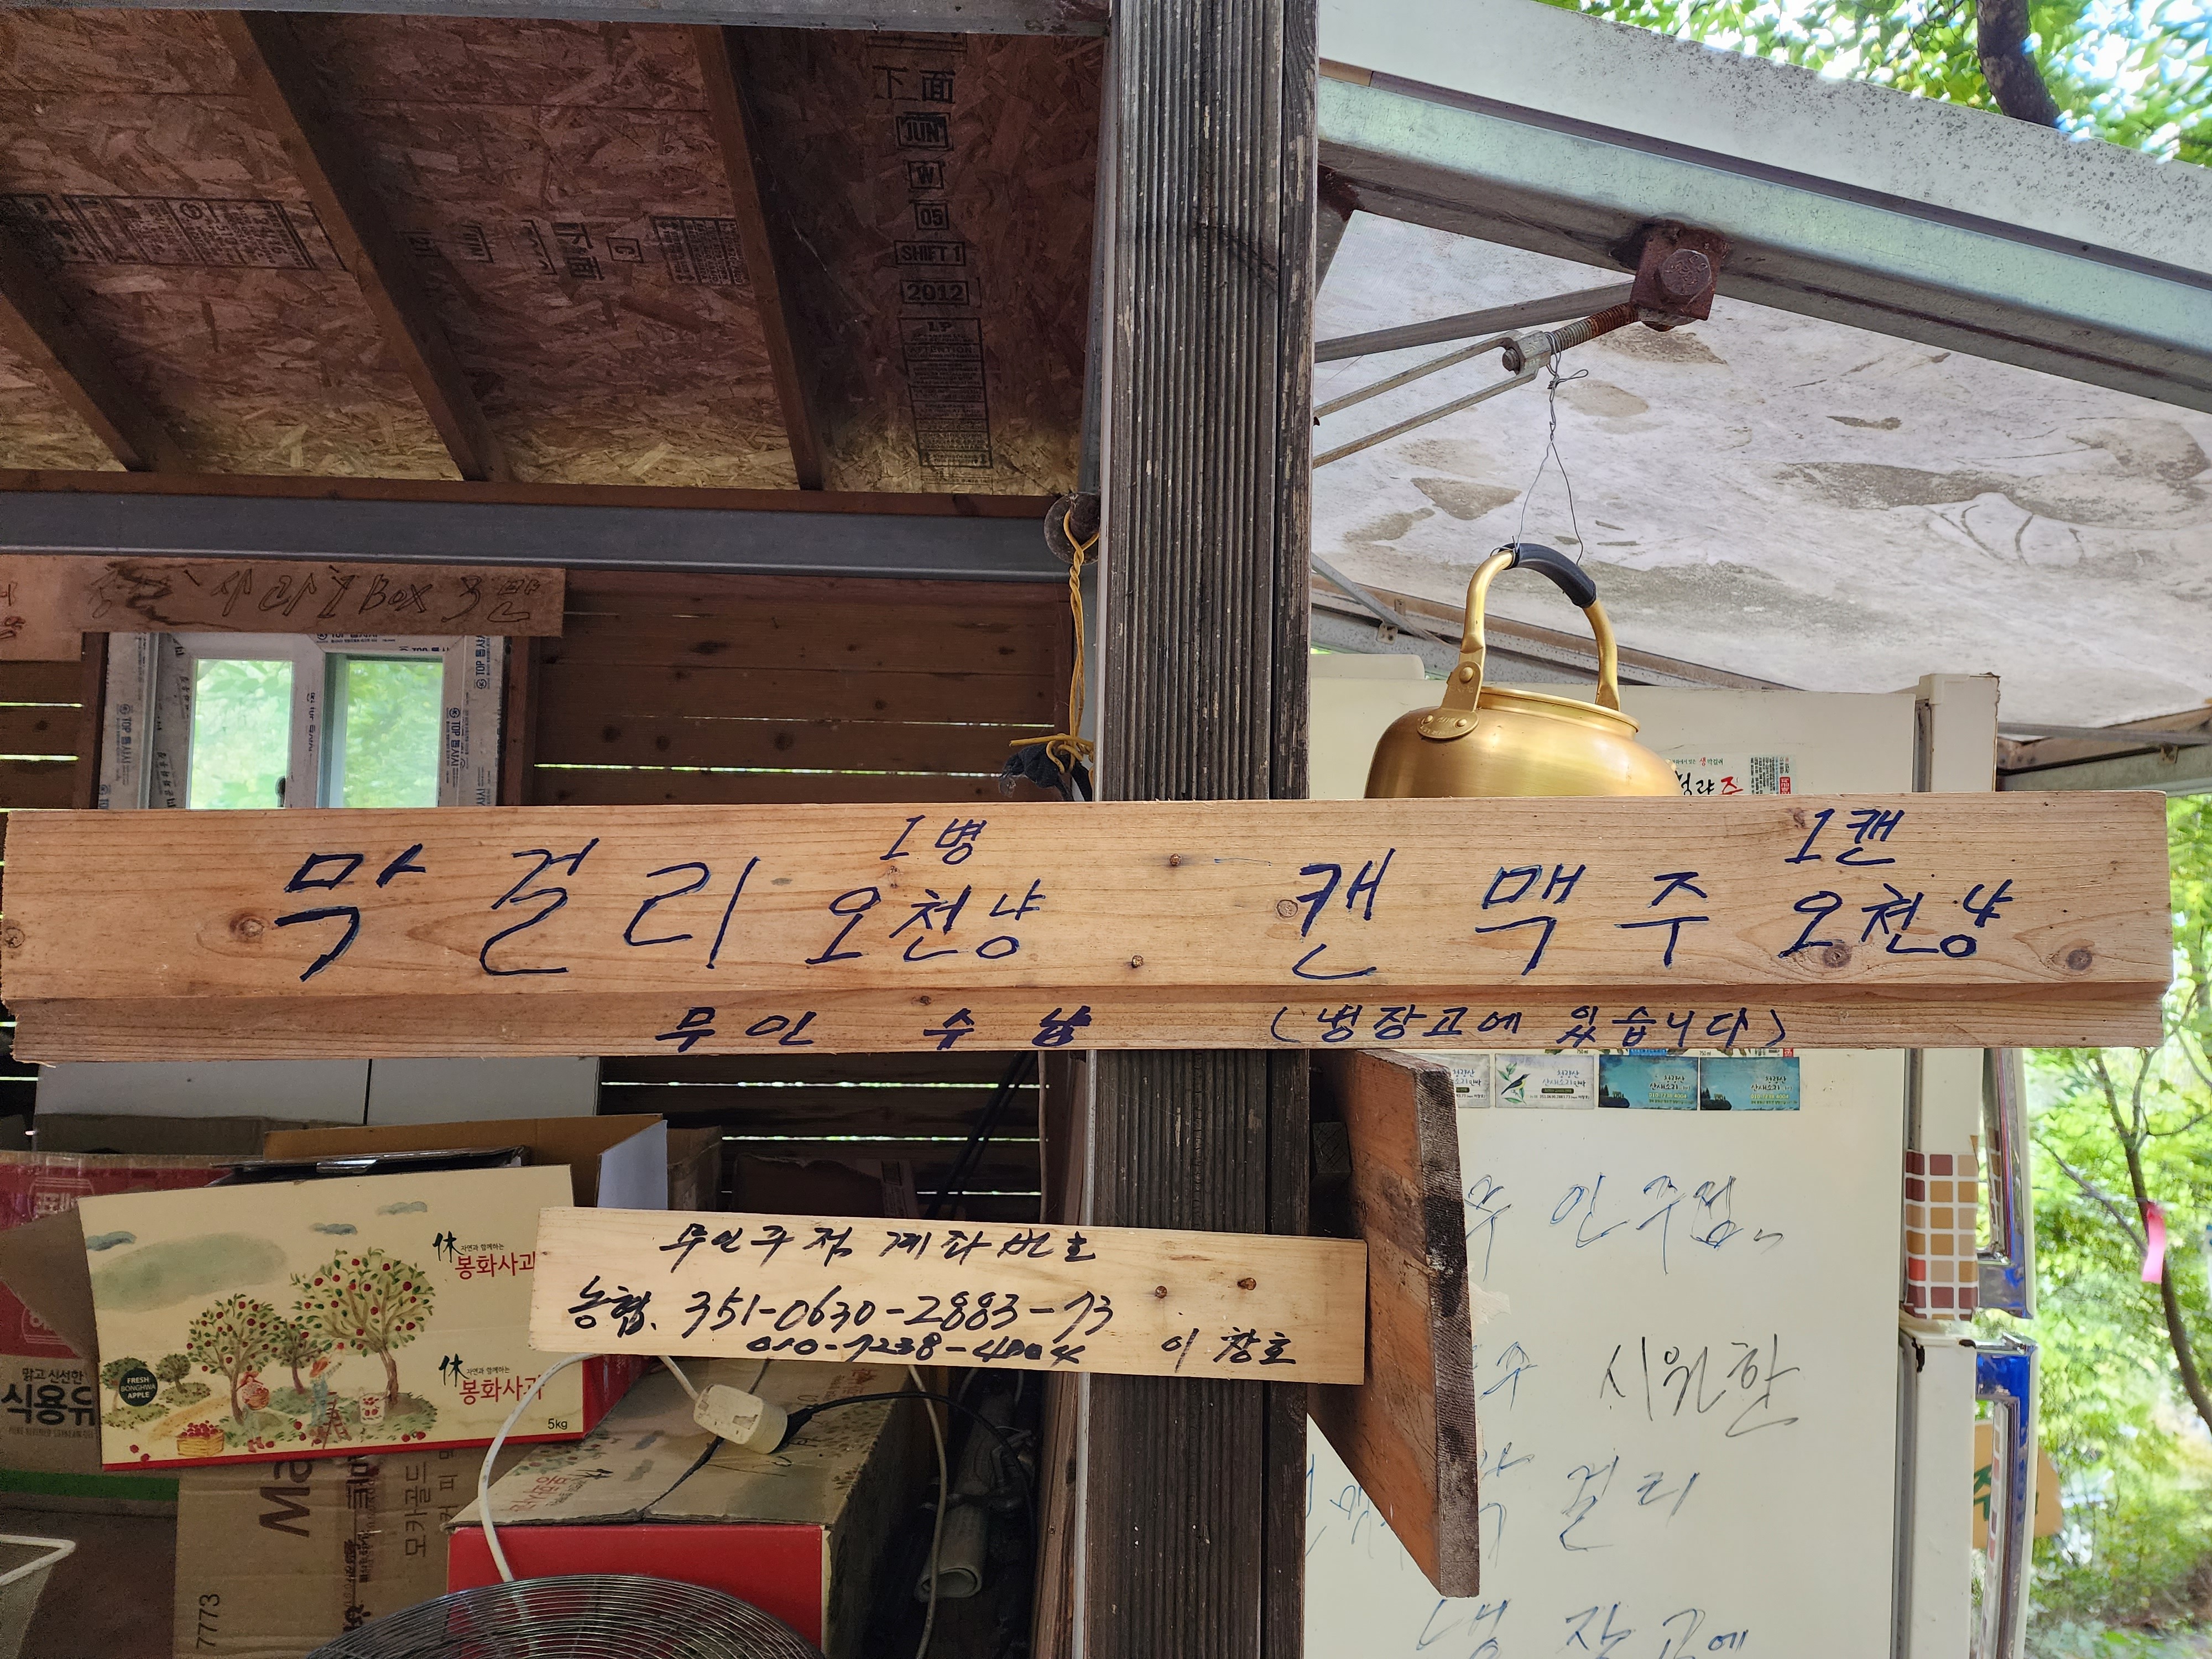 下面
JUN
W
05
SHIFT 1
2012
LP
사과 1 Box 3만
TOP
생
량주
막걸리 1병 오천냥
캔 맥주 1캔 오천냥
무인 수납 (냉장고에 있습니다)
청량산
산새소리
무인주점
무인주점 계좌번호
농협. 351-0630-2883-73
010-7238-4004 이창호
休 자연과 함께하는
봉화사과
休 자연과 함께하는
봉화사과
FRESH BONGHWA APPLE
5kg
맑고 신선한
식용유
시원한
걸리
냉장고에
Ma
모카골드
커피
7773